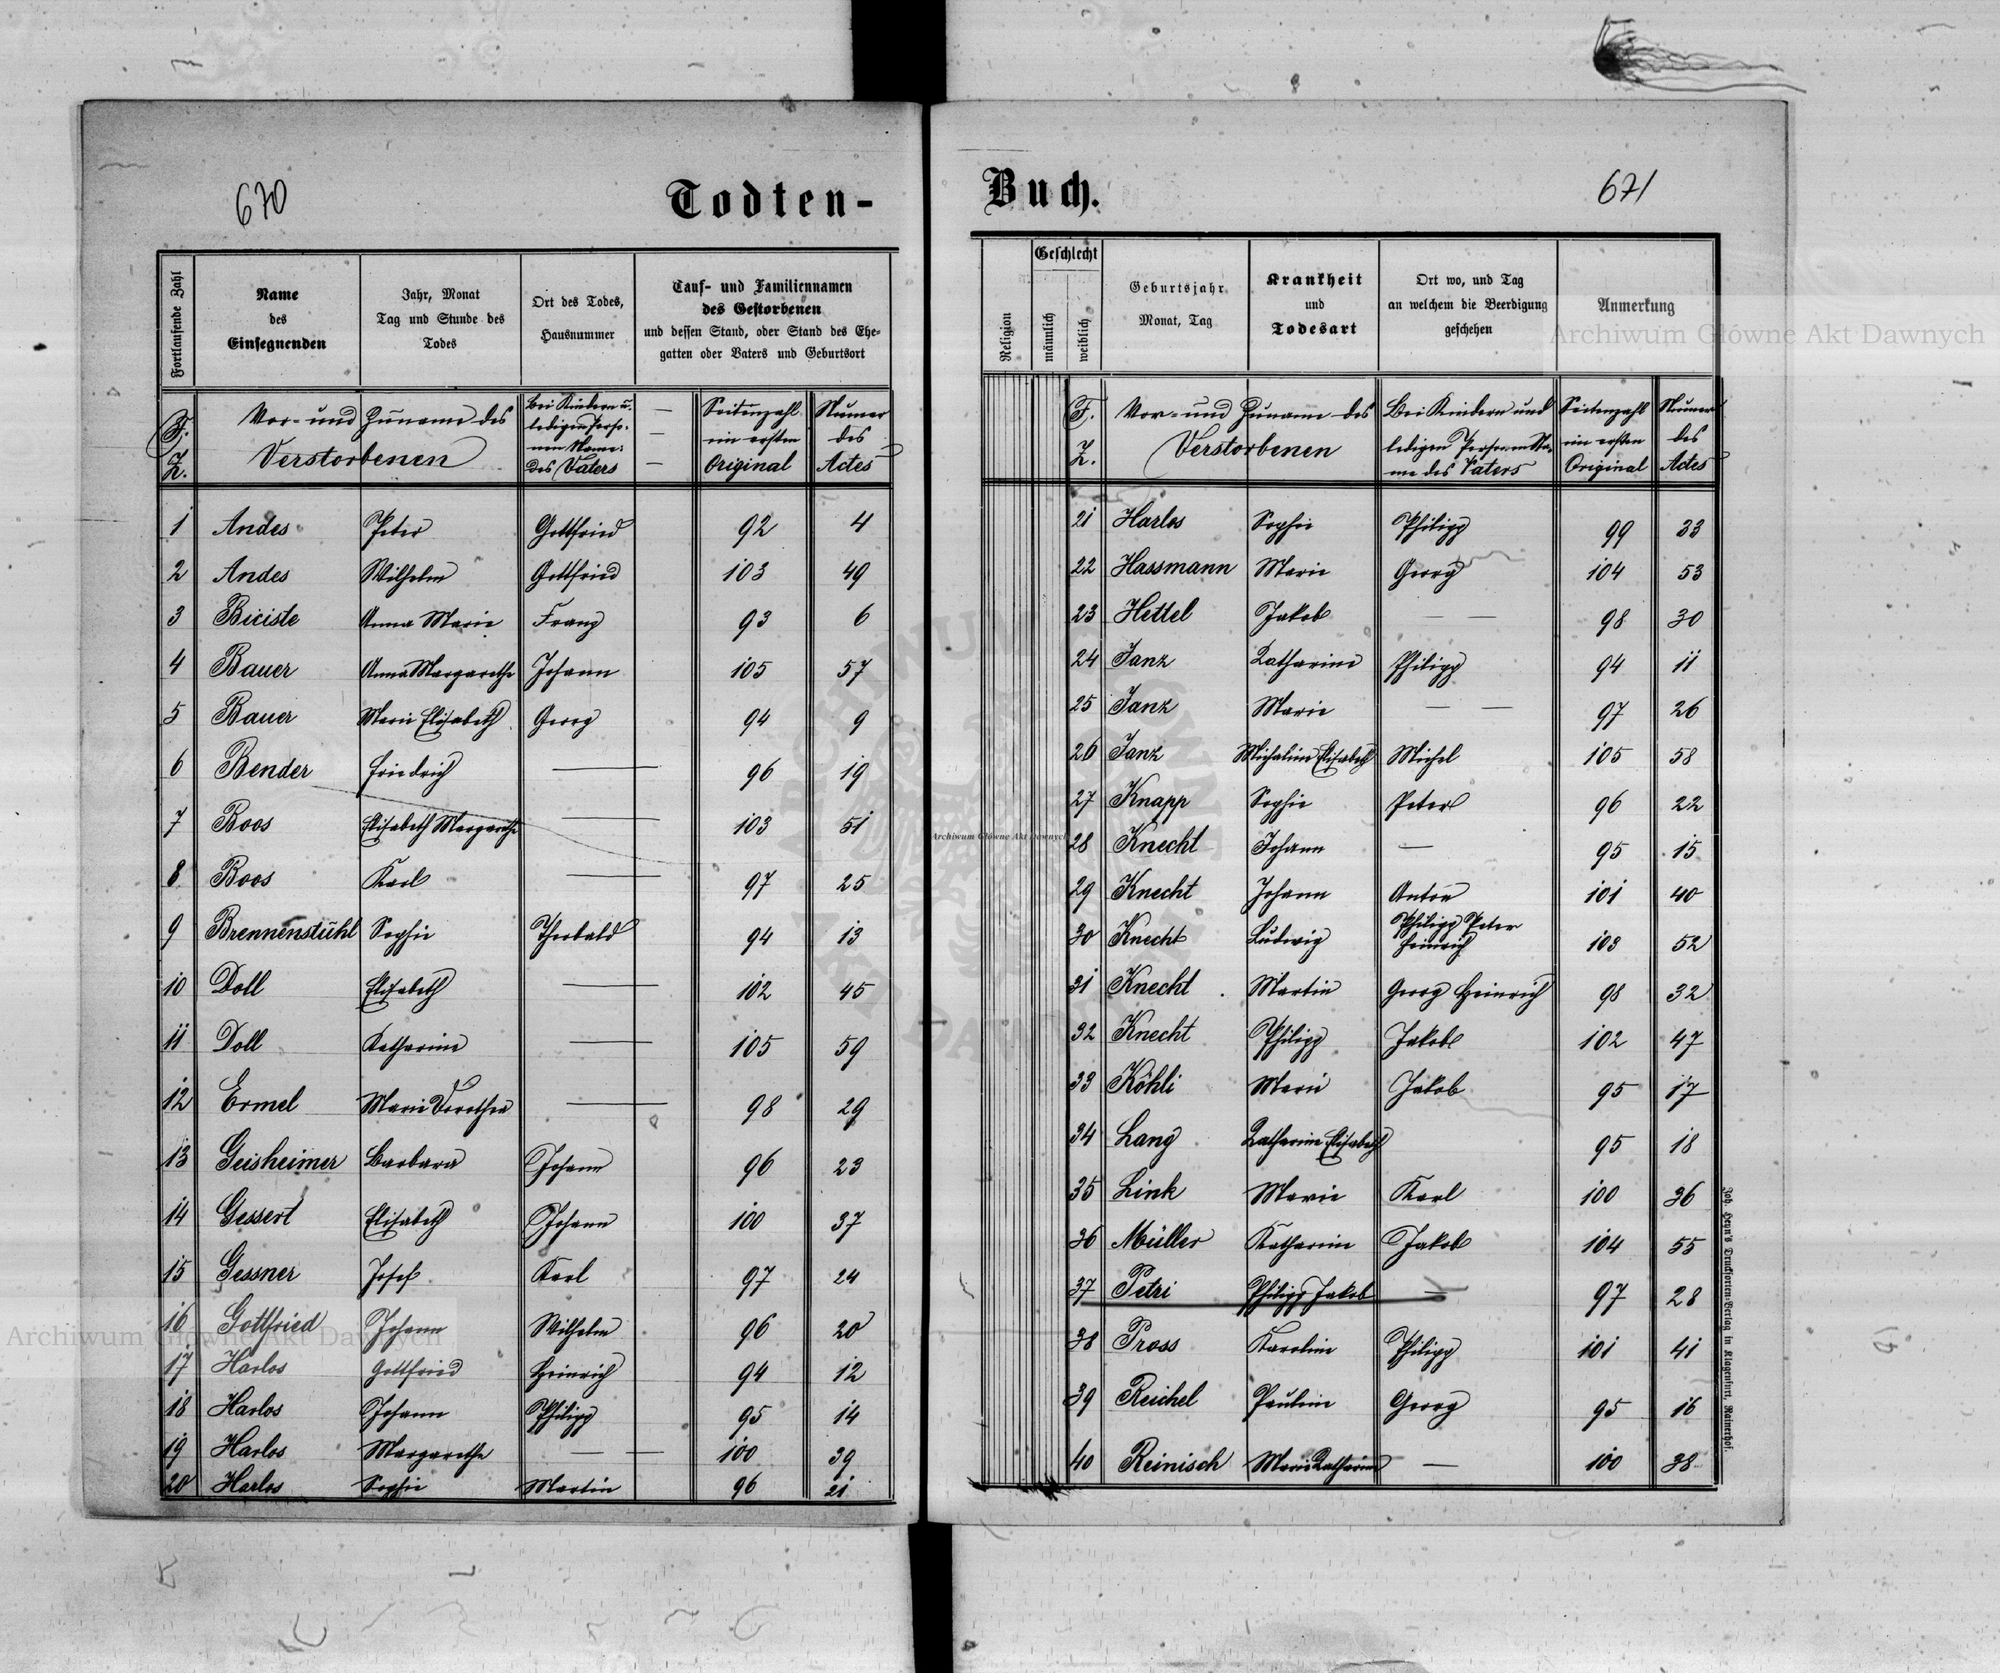 670
Todten-
Buch.
671
Fortlaufende Zahl
Name
des
Einsegnenden
Jahr, Monat
Tag und Stunde des
Todes
Ort des Todes,
Hausnummer
Tauf- und Familiennamen
des Gestorbenen
und dessen Stand, oder Stand des Ehe-
gatten oder Vaters und Geburtsort
F. Z.
Vor- und Zuname des
Verstorbenen
Bei Kindern u.
ledigen Perso-
nen Name
des Vaters
Seitenzahl
im ersten
Original
Numer
des
Actes
1 Andes Peter Gottfried 92 4
2 Andes Wilhelm Gottfried 103 49
3 Biciste Anna Marie Franz 93 6
4 Bauer Anna Margarethe Johann 105 57
5 Bauer Marie Elisabeth Georg 94 9
6 Bender Friedrich — 96 19
7 Boos Elisabeth Margarethe — 103 51
8 Boos Karl — 97 25
9 Brennenstuhl Sophie Theobald 94 13
10 Doll Elisabeth — 102 45
11 Doll Katharine — 105 59
12 Ermel Marie Dorothea — 98 29
13 Geisheimer Barbara Johann 96 23
14 Gessert Elisabeth Johann 100 37
15 Gessner Josef Karl 97 24
16 Gottfried Johann Wilhelm 96 20
17 Harlos Gottfried Heinrich 94 12
18 Harlos Johann Philipp 95 14
19 Harlos Margarethe — — 100 39
20 Harlos Sophie Martin 96 21
Religion
Geschlecht
männlich
weiblich
Geburtsjahr
Monat, Tag
Krankheit
und
Todesart
Ort wo, und Tag
an welchem die Beerdigung
geschehen
Anmerkung
F. Z.
Vor- und Zuname des
Verstorbenen
Bei Kindern und
ledigen Personen Na-
me des Vaters
Seitenzahl
im ersten
Original
Numer
des
Actes
21 Harlos Sophie Philipp 99 33
22 Hassmann Marie Georg 104 53
23 Hettel Jakob — — 98 30
24 Janz Katharine Philipp 94 11
25 Janz Marie — — 97 26
26 Janz Michaline Elisabeth Michel 105 58
27 Knapp Sophie Peter 96 22
28 Knecht Johann — 95 15
29 Knecht Johann Anton 101 40
30 Knecht Ludwig Philipp Peter Heinrich 103 52
31 Knecht Martin Georg Heinrich 98 32
32 Knecht Philipp Jakob 102 47
33 Köhli Marie Jakob 95 17
34 Lang Katharine Elisabeth 95 18
35 Link Marie Karl 100 36
36 Müller Katharine Jakob 104 55
37 Petri Philipp Jakob — 97 28
38 Pross Karoline Philipp 101 41
39 Reichel Pauline Georg 95 16
40 Reinisch Marie Katharine — 100 38
Joh. Heyn's Drucksorten-Verlag in Klagenfurt, Rainerhof.
Archiwum Główne Akt Dawnych
Archiwum Główne Akt Dawnych
Archiwum Główne Akt Dawnych